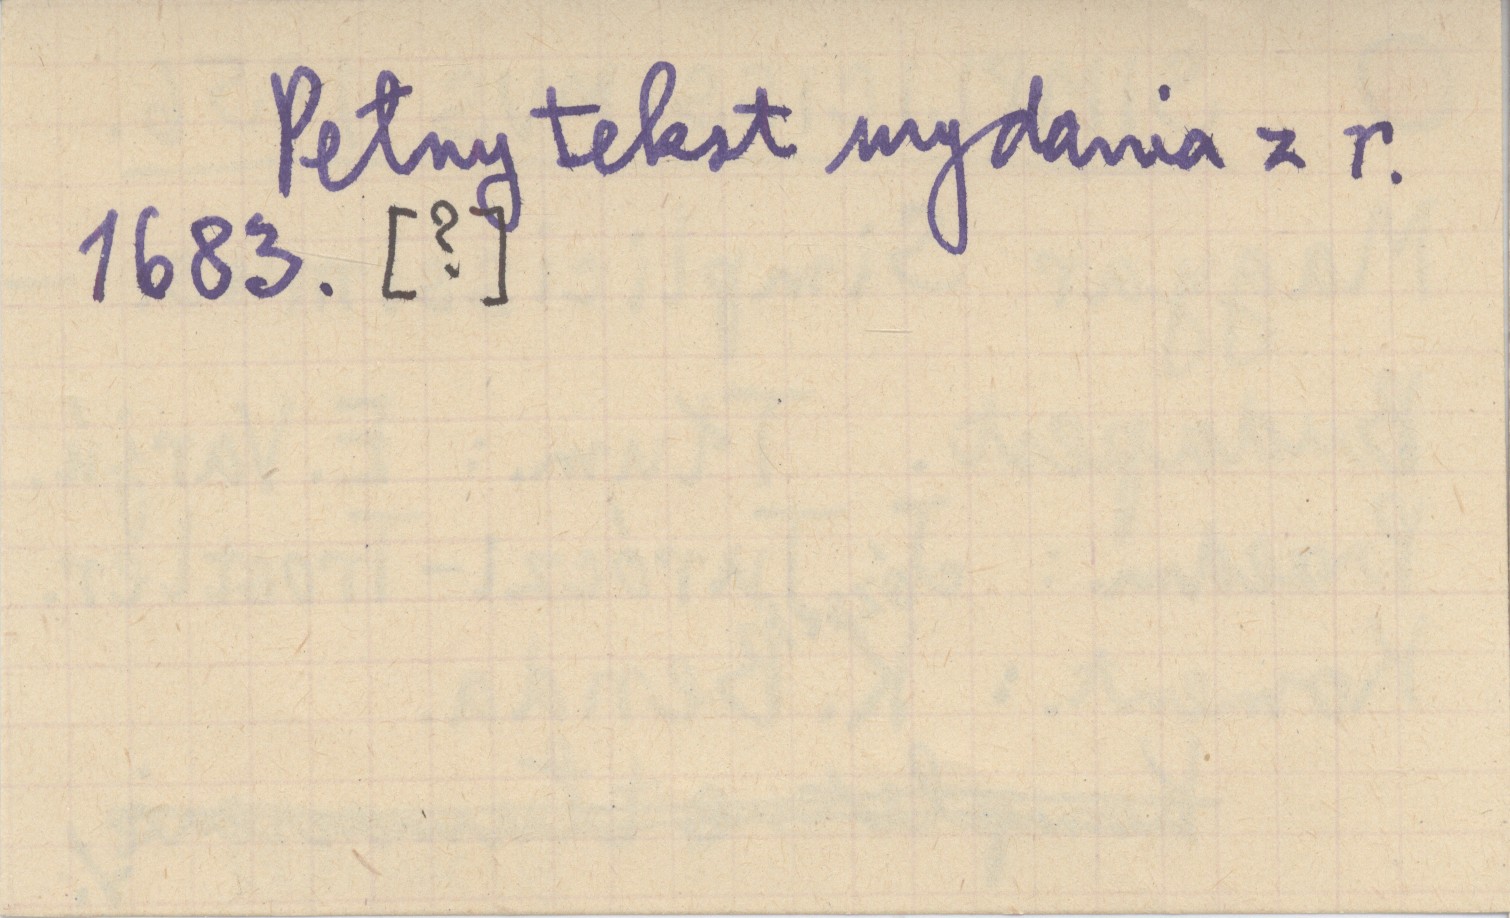 Pełny tekst wydania z r.
1683. [?]